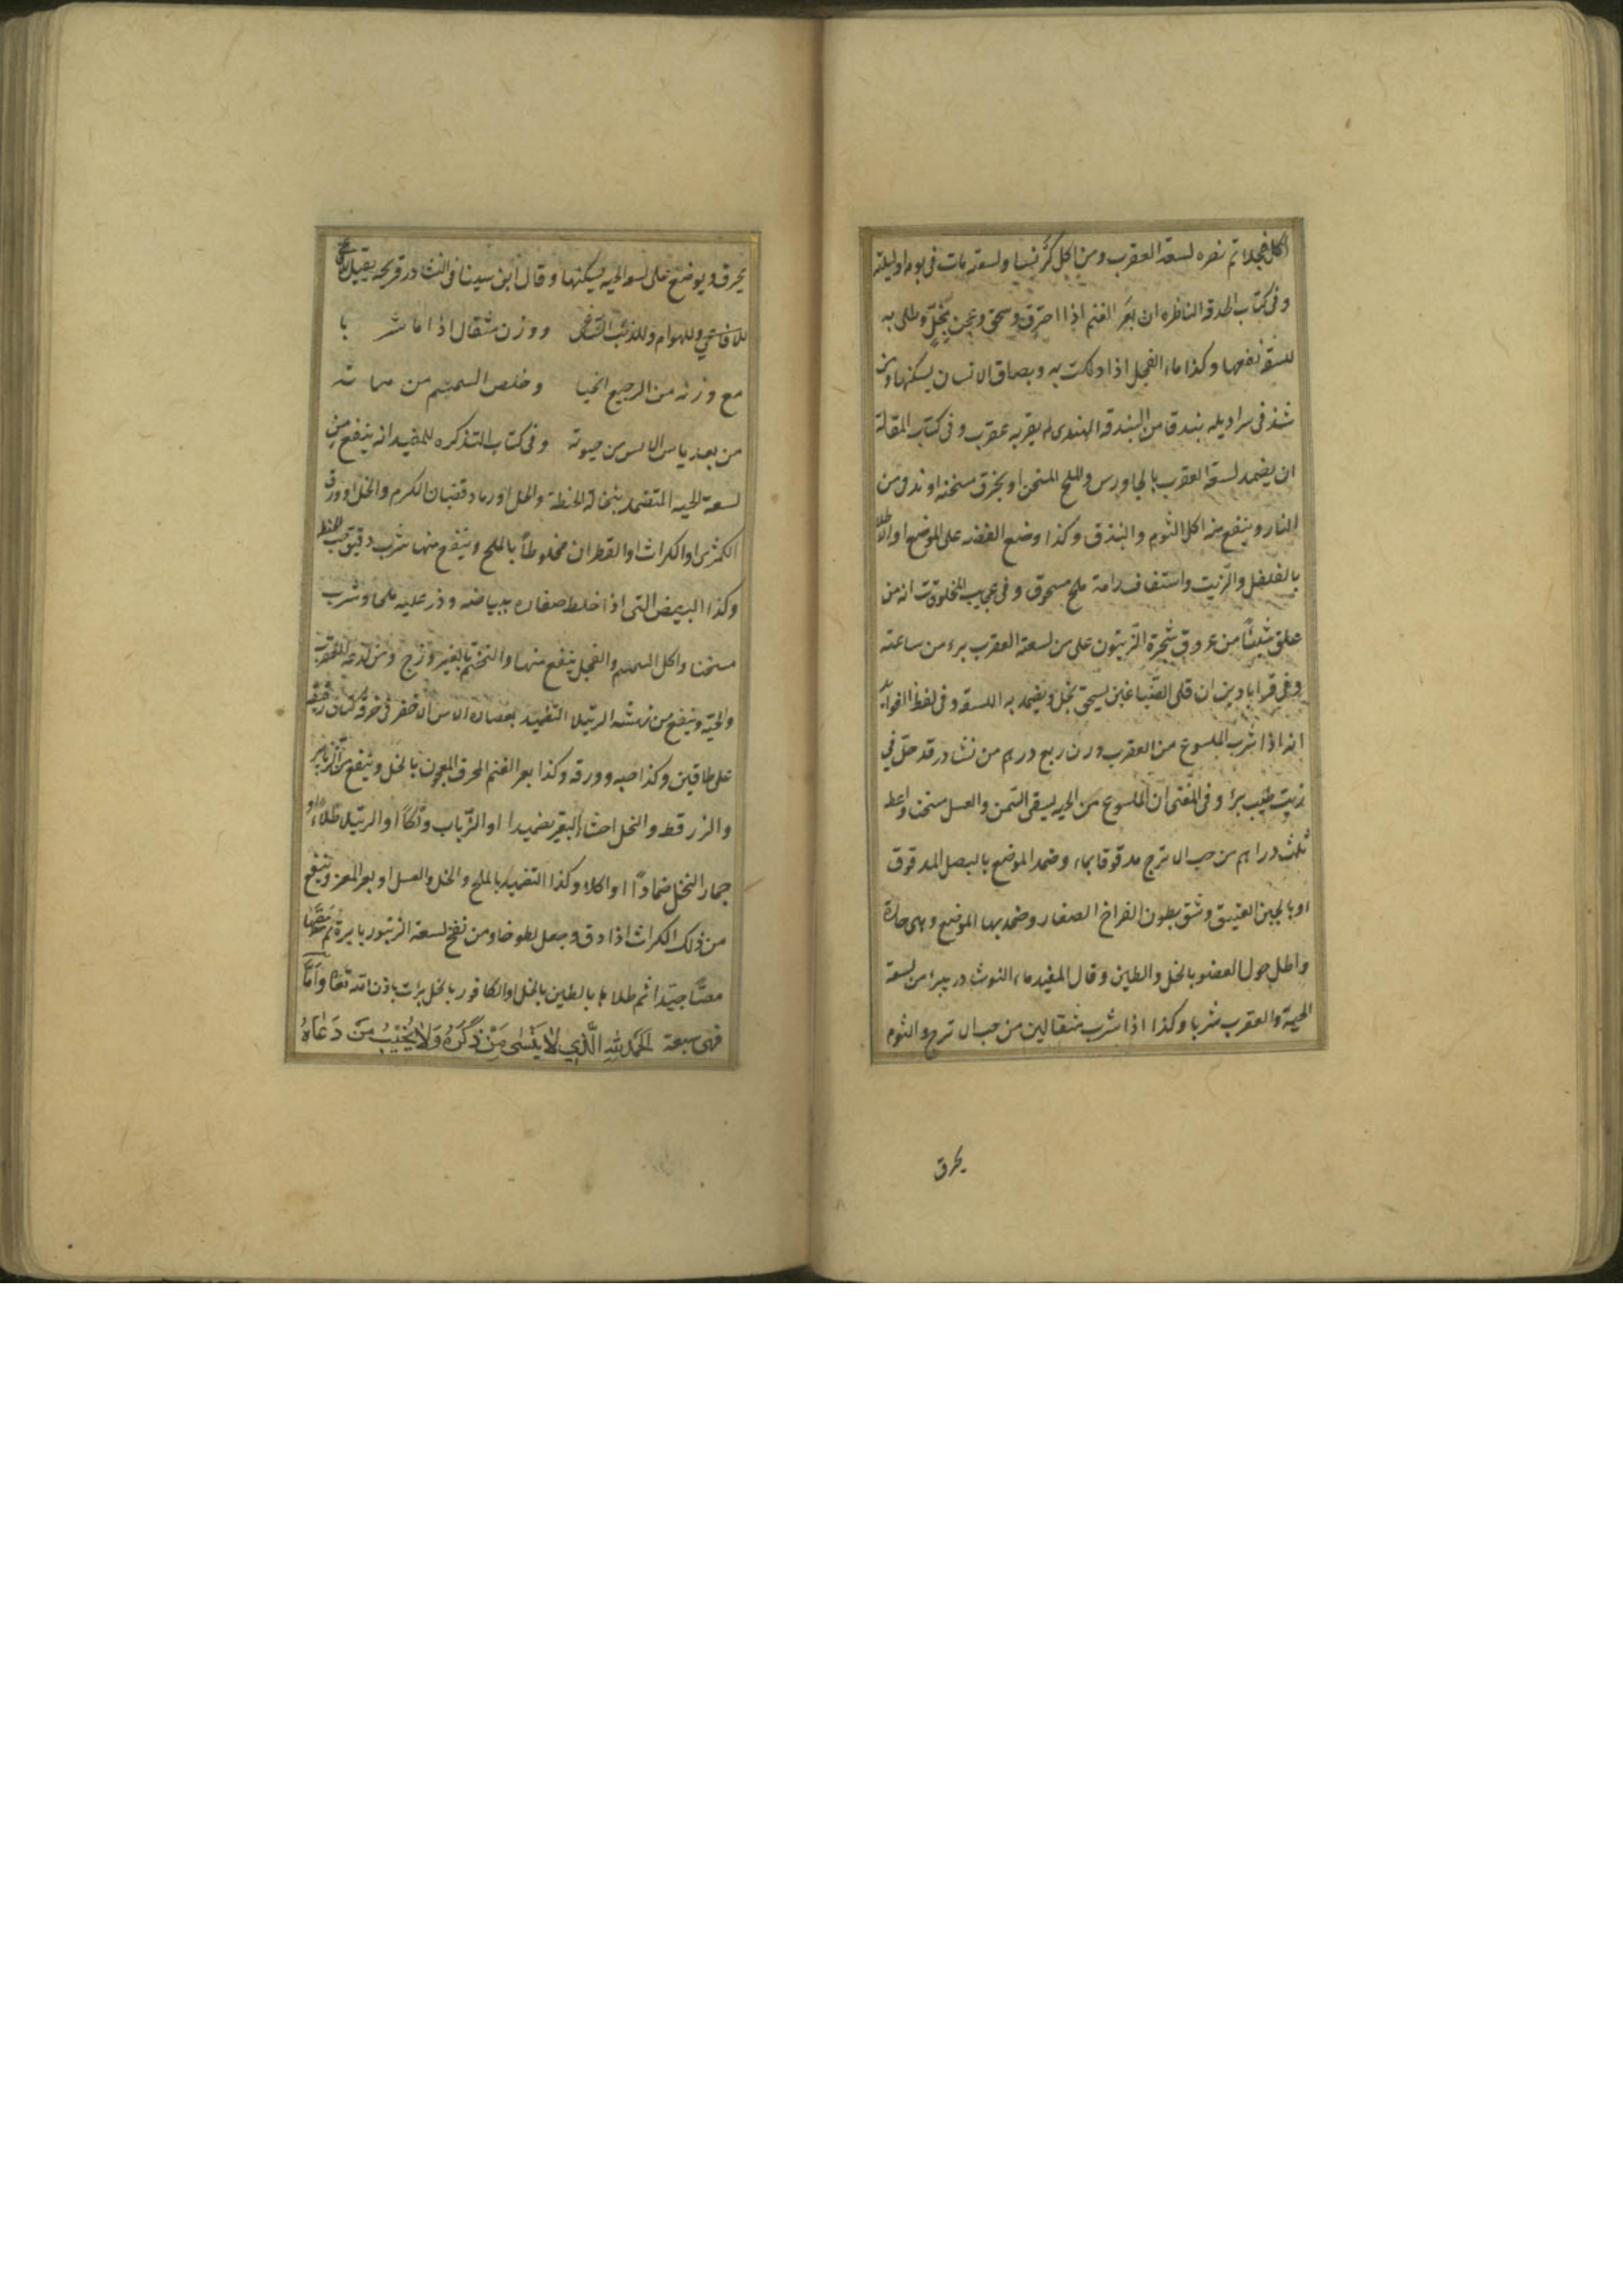 اكل فجلا ثم نضره لسعة العقرب ومن اكل كرفسا ولسعته مات في يومه او ليلته
وفي كتاب الحدقة الناظره ان بعر الغنم اذا احترق وسحق وعجن بخل وطلي به
للسعة نفعها وكذا ماء الفجل اذا دلكت به وبصاق الانسان يسكنها ومن
شد في سراويله بندقا من البندقة الهندى لم يقربه عقرب وفي كتاب المقالة
ان يضمد لسعة العقرب بالجاورس والملح المسخن او بخرق مسخنه او تدنى من
النار وينفع من اكل الثوم والبندق وكذا وضع الفضه على الموضع او الطلا
بالفلفل والزيت واستفاف راحة ملح مسحوق وفي عجايب المخلوقات انه من
علق شيئا من عروق شجرة الزيتون على من لسعة العقرب برء من ساعته
وفي قراباذين ان قلى الصباغين يسحق بخل ويضمد به اللسعة وفي لقط الفوايد
انه اذا شرب الملسوع من العقرب وزن ربع درهم من نشادر قد حل في
زيت طيب برأ وفي المغنى ان الملسوع من الحيه يسقى السمن والعسل مسخن واعط
ثلث دراهم من حب الاترج مدقوقا بماء وضمد الموضع بالبصل المدقوق
او بالجبن العتيق وشق بطون الفراخ الصغار وضمد بها الموضع وهي حارة
واطل حول العضو بالخل والطين وقال المفيد ماء التوت در يبرء من لسعة
الحية والعقرب شربا وكذا اذا شرب مثقالين من حب الاترج والثوم
يحرق
يحرق ويوضع على لسعة الحيه فيسكنها وقال ابن سينا في النشادر وريحه يقتل
للافاعي وللهوام وللذئب ووزن مثقال اذا ما
مع وزنه من الرجيع وخلص السميم من مماته
من بعد ياس الانس من حيوته وفي كتاب التذكره للمفيد انه ينفع من
لسعة الحيه المتضمد بنخالة الحنطة والخل او رماد قضبان الكرم والخل او ورق
الكمثرى او الكراث او القطران مخلوطا بالملح وينفع منها شرب دقيق حب
وكذا البيض التى اذا خلط صفاره ببياضه وذر عليه ملحا وشرب
مسخنا واكل السمسم والفجل ينفع منها والتختم بالفيروزج ومن لدغه العقرب
والحية وينفع من نهشة الرتيلا التضميد بعصارة الاس الاخضر في خرقة كتان
على طاقين وكذا حبه وورقه وكذا بعر الغنم المحرق المعجون بالخل وينفع من الزنابير
والزرقط والنحل اخثاء البقر تضميدا او الذباب دلكا او الرتيلا طلاء او
جمار النخل ضمادا او اكلا وكذا التضميد بالملح والخل والعسل او بعر المعز وينفع
من ذلك الكراث اذا دق وجعل لطوخا ومن نفخ لسعة الزنبور بابرة ثم مصها
مصا جيدا ثم طلاها بالطين بالخل او الكافور بالخل برات باذن الله تعا واما
فهى سبعة الحمد لله الذي لا ينسى من ذكره ولا يخيب من دعاه